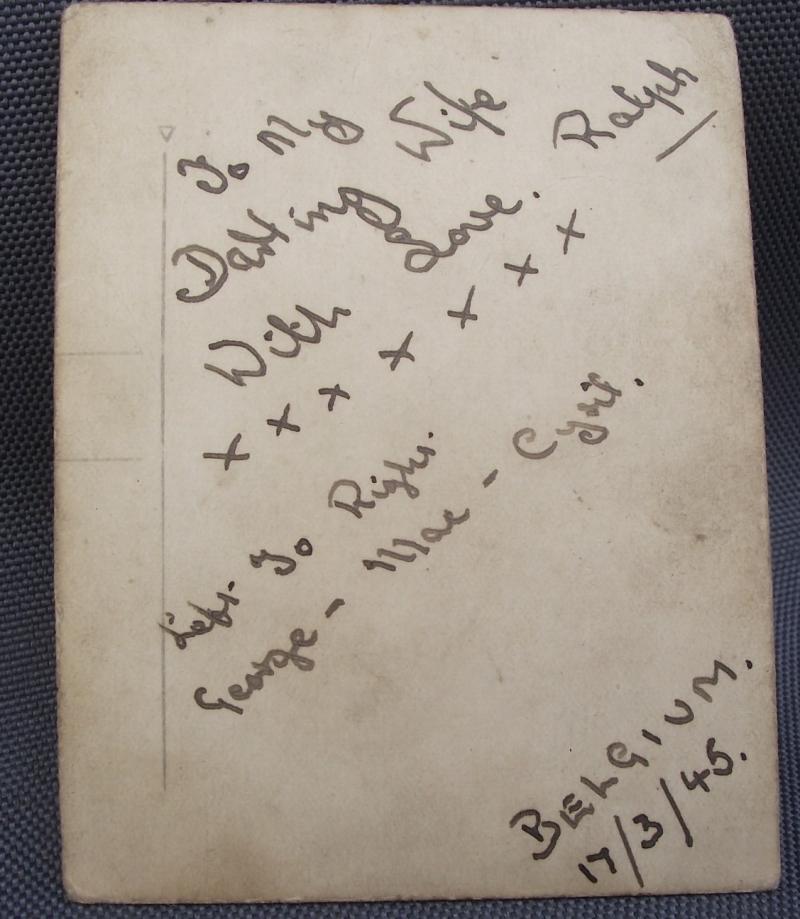 To My Wife
With Love. Ralph
x x x x x x x
Left. To Right.
George - Mae - Cyril.
BELGIUM.
17/3/45.